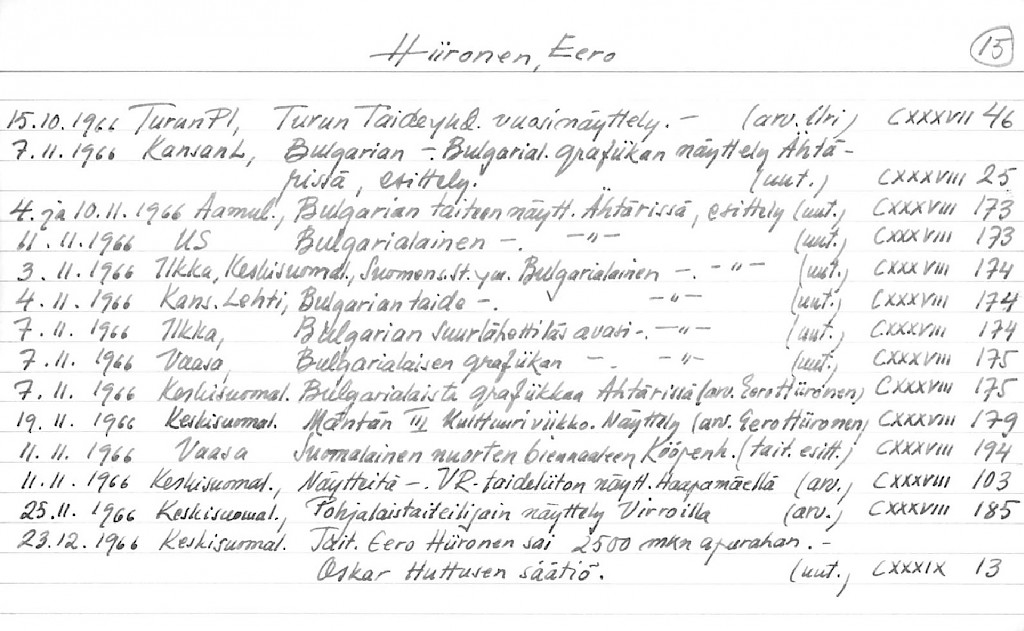 Hiironen, Eero 15
15.10.1966 TurunPl, Turun Taideyhd. vuosinäyttely. – (arv. Uri) CXXXVII 46
7.11.1966 KansanL, Bulgarian –. Bulgarial. grafiikan näyttely Ähtä-
rissä, esittely. (uut.) CXXXVIII 25
4. ja 10.11.1966 Aamul., Bulgarian taiteen näytt. Ähtärissä, esittely (uut.) CXXXVIII 173
11.11.1966 US Bulgarialainen –. –"– (uut.) CXXXVIII 173
3.11.1966 Ilkka, Keskisuomal., Suomens.St. ym. Bulgarialainen –. –"– (uut.) CXXXVIII 174
4.11.1966 Kans.Lehti, Bulgarian taide –. –"– (uut.) CXXXVIII 174
7.11.1966 Ilkka, Bulgarian suurlähettiläs avasi –. –"– (uut.) CXXXVIII 174
7.11.1966 Vaasa, Bulgarialaisen grafiikan –. –"– (uut.) CXXXVIII 175
7.11.1966 Keskisuomal. Bulgarialaista grafiikkaa Ähtärissä (arv. Eero Hiironen) CXXXVIII 175
19.11.1966 Keskisuomal. Mäntän III Kulttuuriviikko. Näyttely (arv. Eero Hiironen) CXXXVIII 179
11.11.1966 Vaasa Suomalainen nuorten biennaaleen Kööpenh. (tait. esitt.) CXXXVIII 194
11.11.1966 Keskisuomal., Näytteitä –. VR-taideliiton näytt. Haapamäellä (arv.) CXXXVIII 103
25.11.1966 Keskisuomal., Pohjalaistaiteilijain näyttely Virroilla (arv.) CXXXVIII 185
23.12.1966 Keskisuomal. Tait. Eero Hiironen sai 2500 mkn apurahan. –
Oskar Huttusen säätiö. (uut.) CXXXIX 13